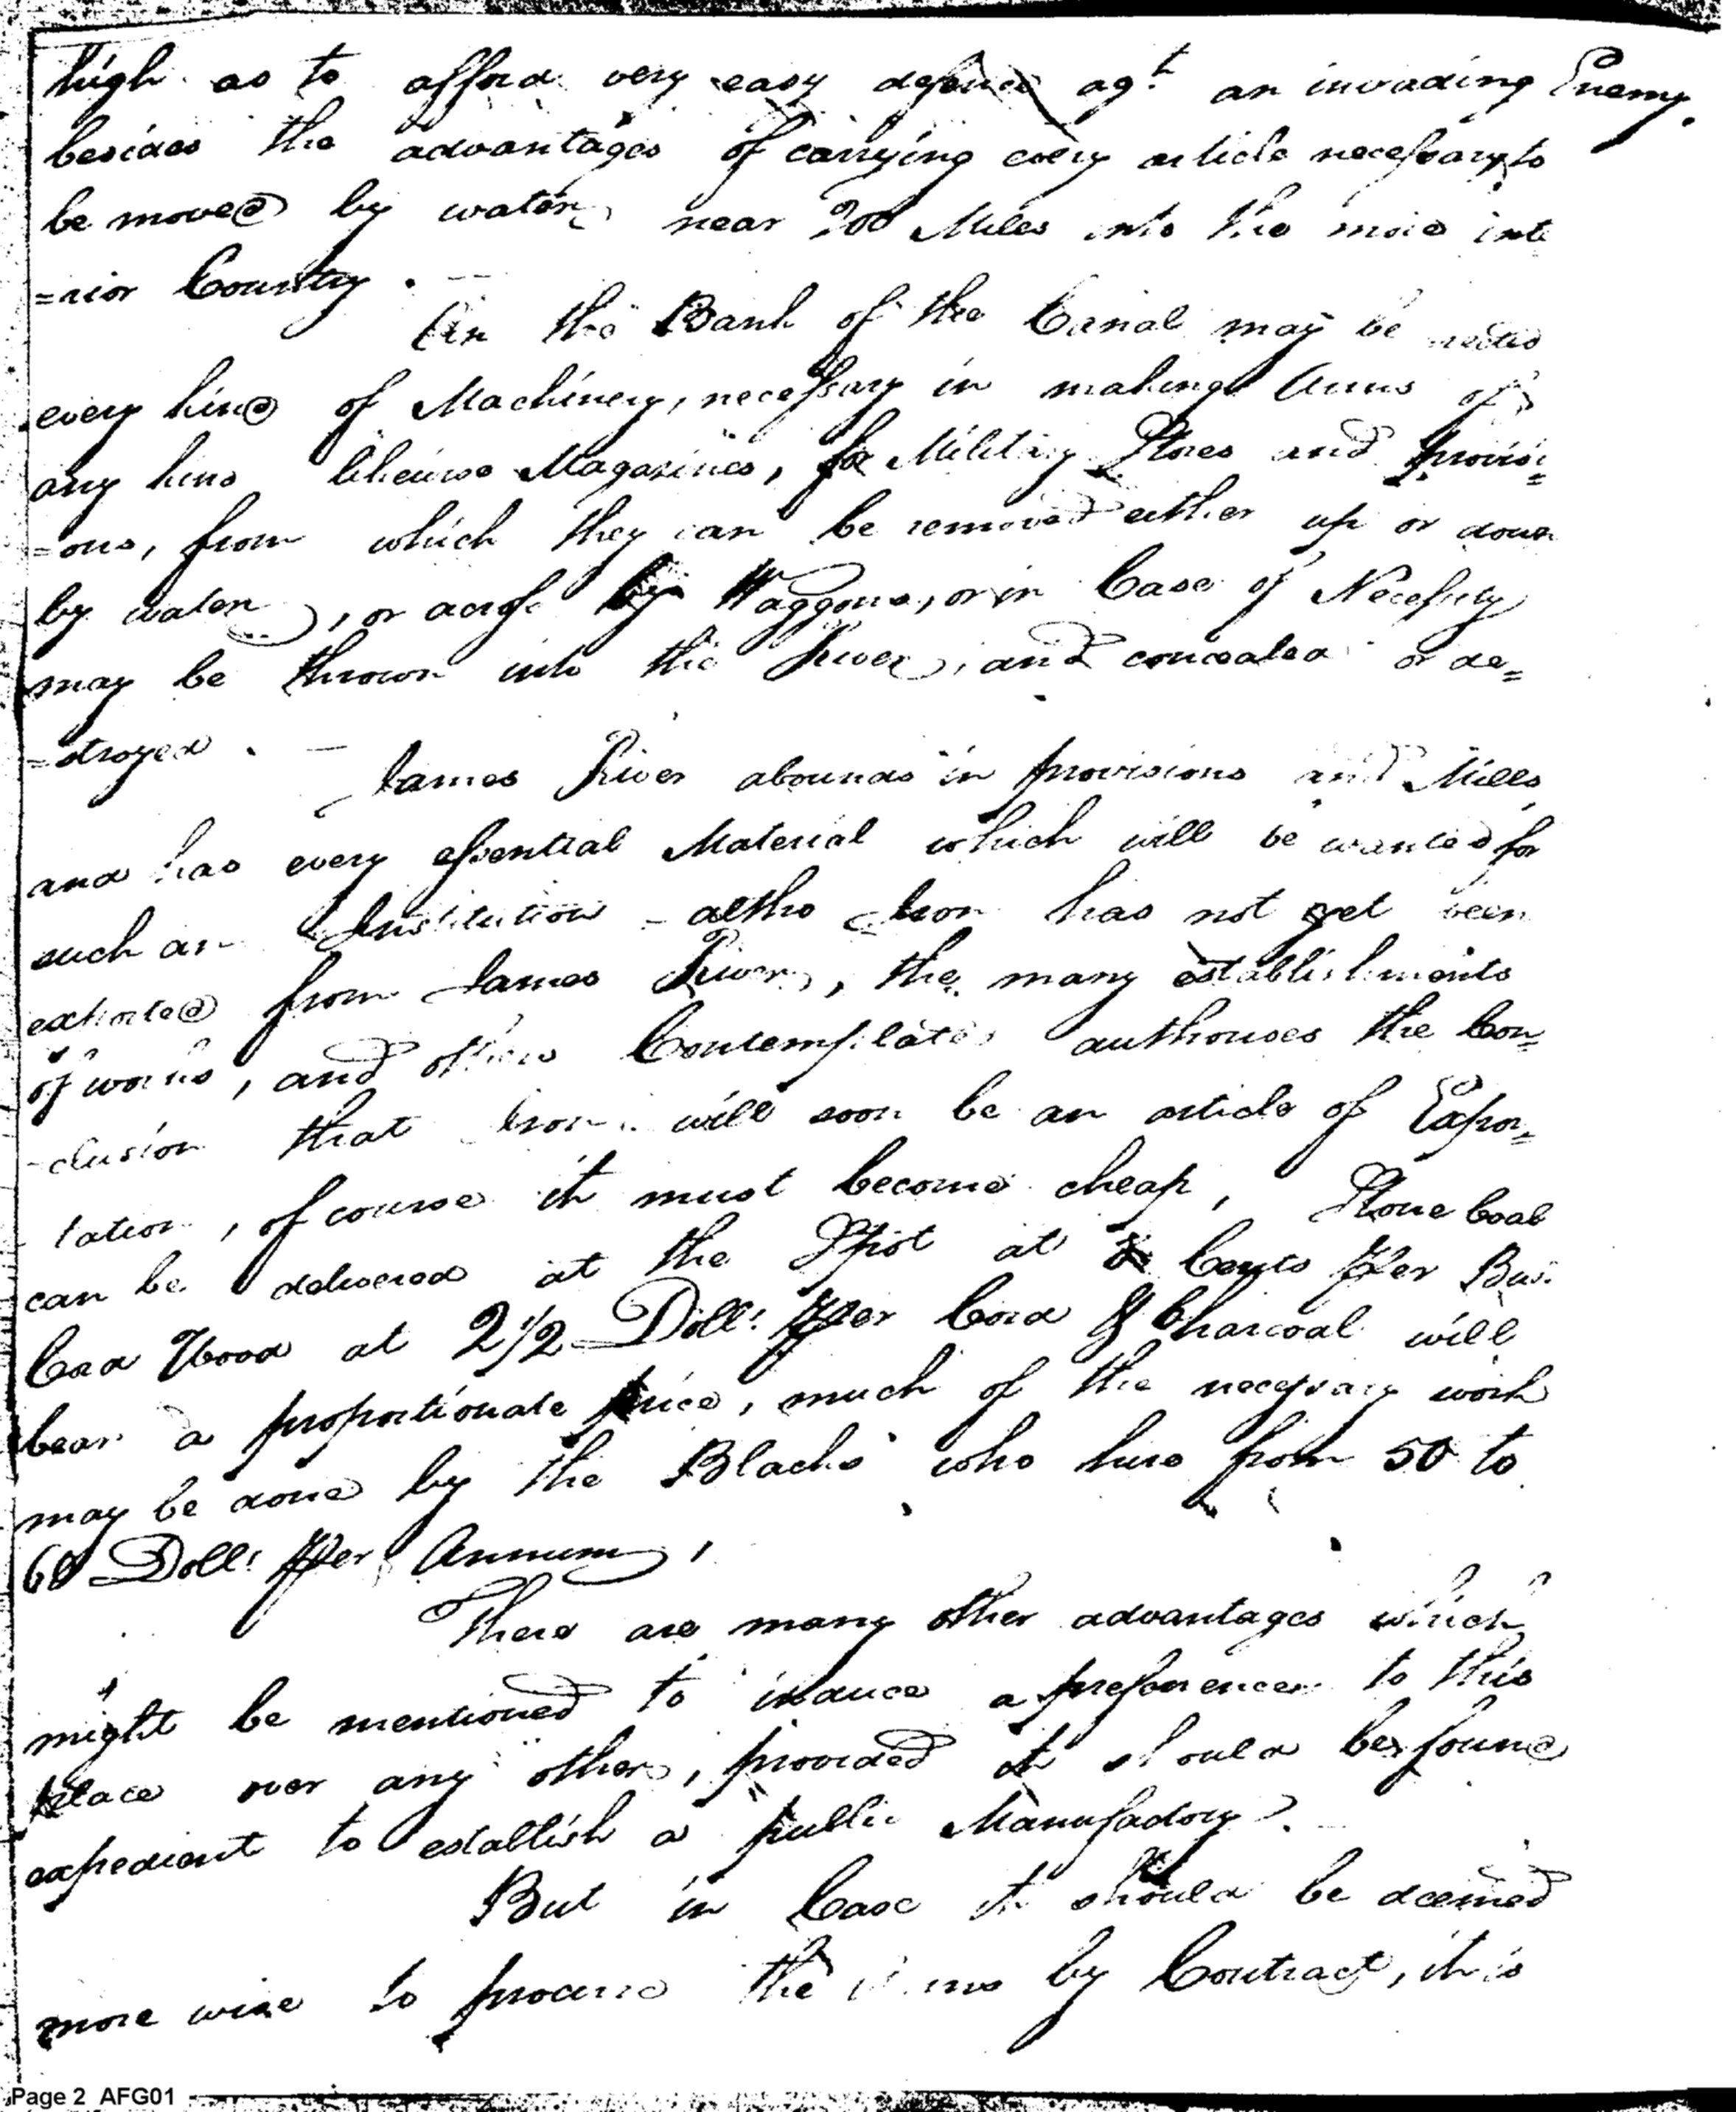 high as to afford very easy defence agt. an invading Enemy.
besides the advantages of carrying every article necessary to
be moved by water, near 200 Miles into the more inte
=rior Country. —
On the Bank of the Canal may be
every kind of Machinery, necessary in making Arms of
any kind likewise Magazines, for Military Stores and provisi=
=ons, from which they can be removed either up or down
by water, or across by Waggons, or in Case of Necessity
may be thrown into the River, and concealed or de=
=stroyed. —
James River abounds in provisions and Mills
and has every essential Material which will be wanted for
such an Institution – altho Iron has not yet been
from James River, the many establishments
of works, and others Contemplated authorises the Con=
-clusion that Iron will soon be an article of Expor=
tation, of course it must become cheap, Stone Coal
can be delivered at the Spot at Cents Per Bus.
Cord Wood at 2 1/2 Dolls. Per Cord & Charcoal will
bear a proportionate price, much of the necessary work
may be done by the Blacks who hire from 50 to
60 Dolls. Per Annum,
There are many other advantages which
might be mentioned to induce a preference to this
place over any other, provided it should be found
expedient to establish a public Manufactory.
But in Case it should be deemed
more wise to procure the Arms by Contract, it is
Page 2 AFG01